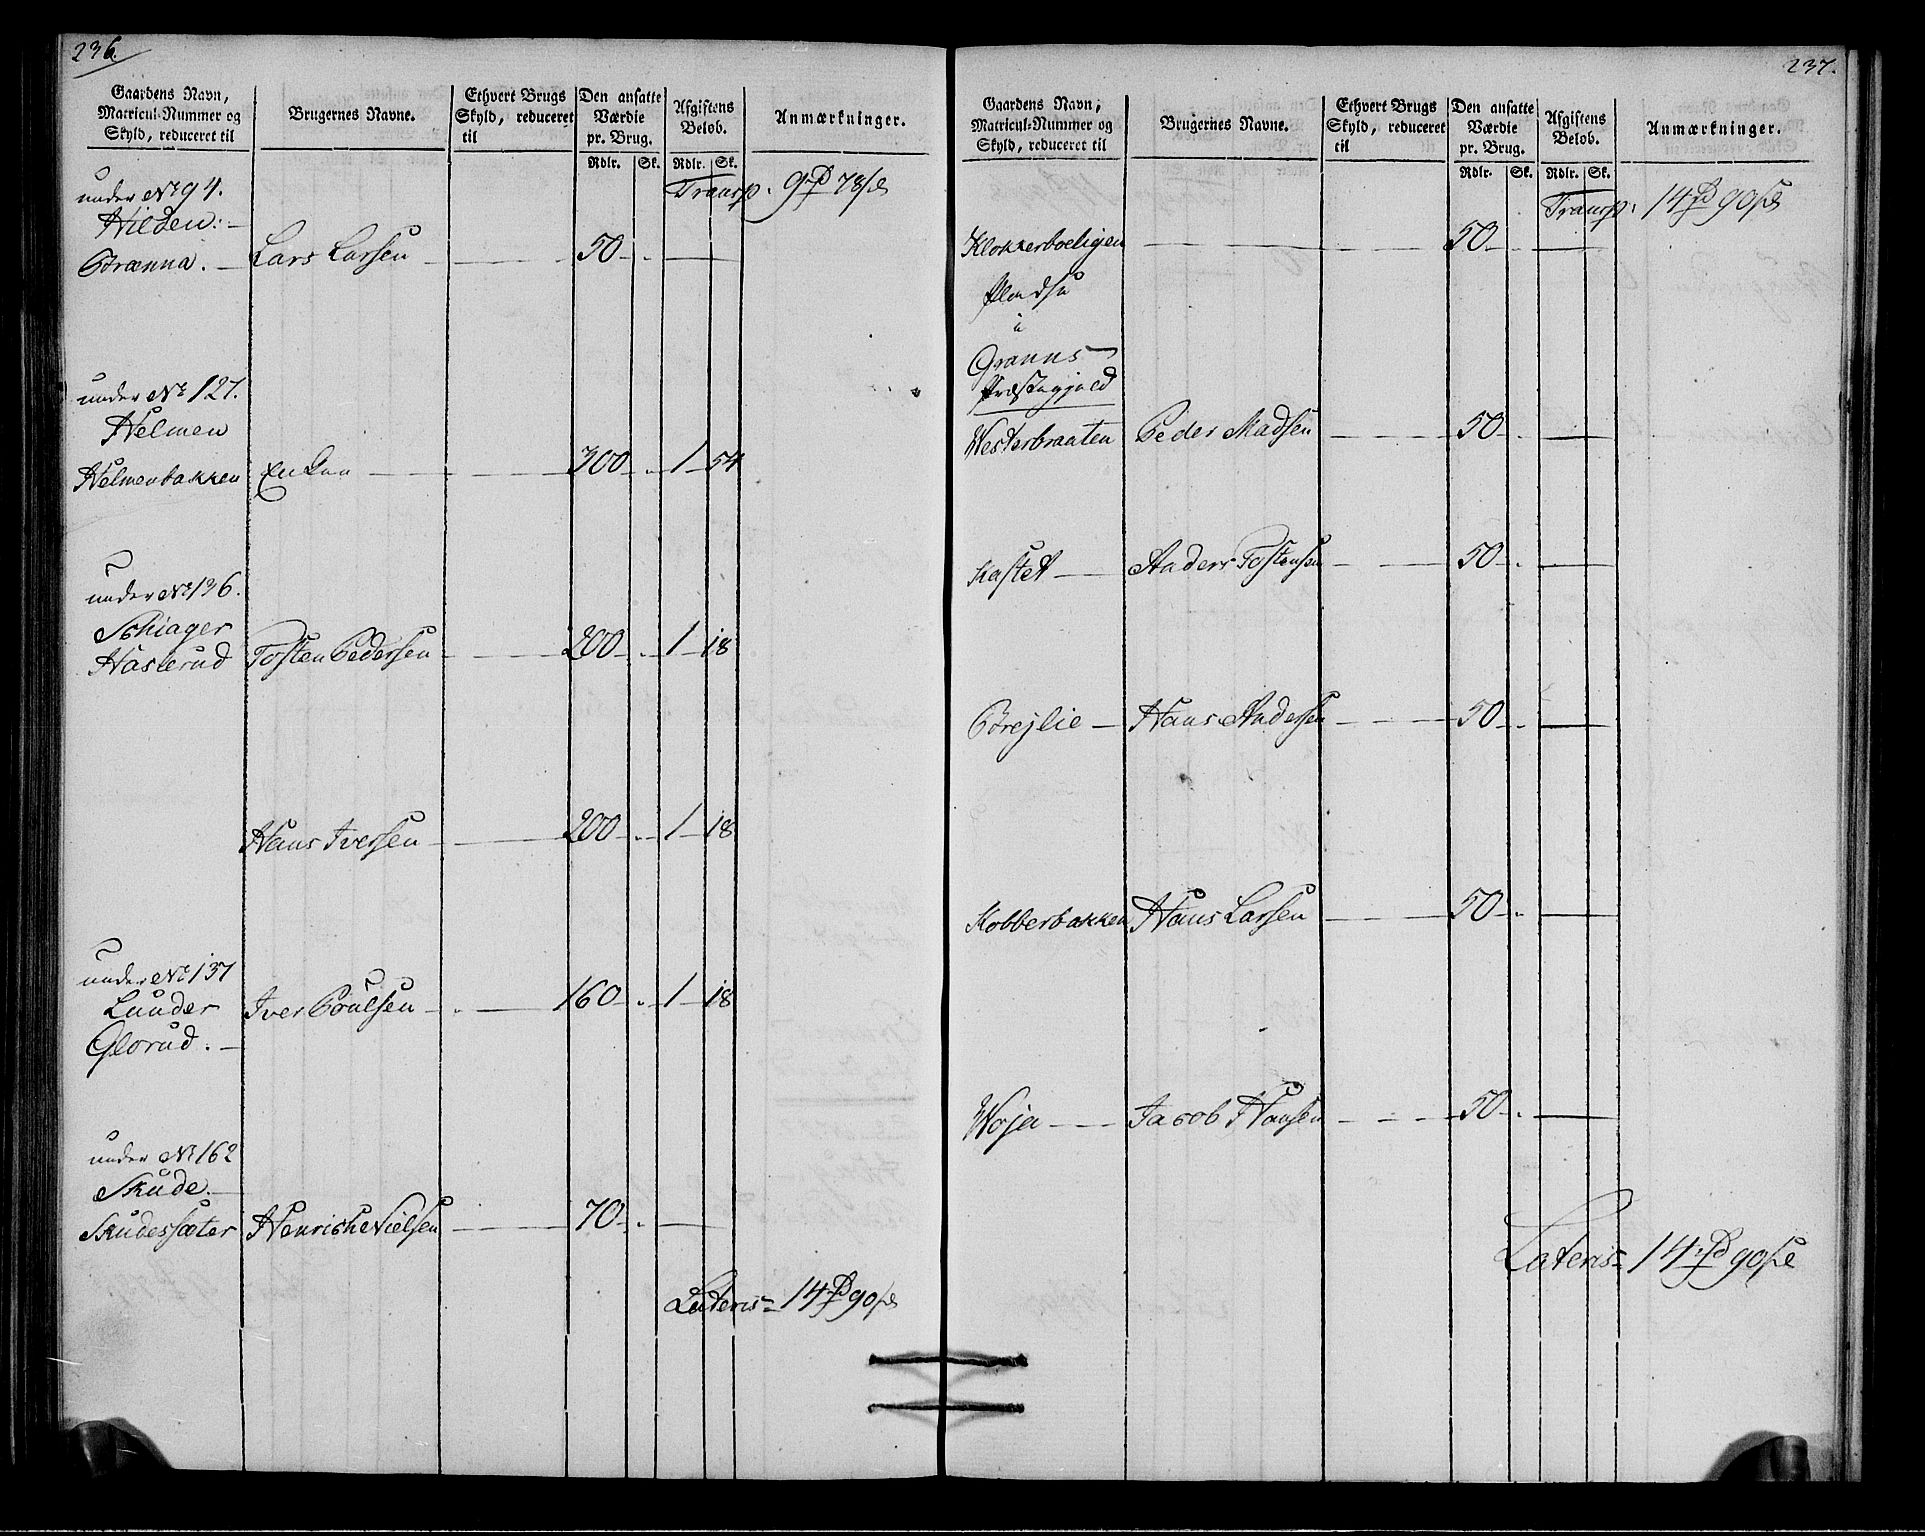 236.
Gaardens Navn, Matricul-Nummer og Skyld, reduceret til
Brugernes Navne.
Ethvert Brugs Skyld, reduceret til
Den ansatte Værdie pr. Brug.
Rdlr. Sk.
Afgiftens Beløb.
Rdlr. Sk.
Anmærkninger.
Transp. 9 78
under No 94.
Hilden:
Brænna. Lars Larsen 50
under No 127.
Helmen
Helmenbakken Enken 300 1 54
under No 136.
Schiager
Haslerud Tosten Pedersen 200 1 18
Hans Iversen 200 1 18
under No 137
Lunder
Glorud. Iver Poulsen 160 1 18
under No 162
Skude.
Skudessæter Henrich Nielsen 70
Lateris 14 90
237.
Gaardens Navn, Matricul-Nummer og Skyld, reduceret til
Brugernes Navne.
Ethvert Brugs Skyld, reduceret til
Den ansatte Værdie pr. Brug.
Rdlr. Sk.
Afgiftens Beløb.
Rdlr. Sk.
Anmærkninger.
Transp. 14 90
Klokkerboeligen 50
i
Granns
Præstegjeld
Westerbraaten Peder Madsen 50
Kastet Anders Tostensen 50
Brejlie Hans Andersen 50
Kobberbakken Hans Larsen 50
Woja Jacob Hansen 50
Lateris 14 90